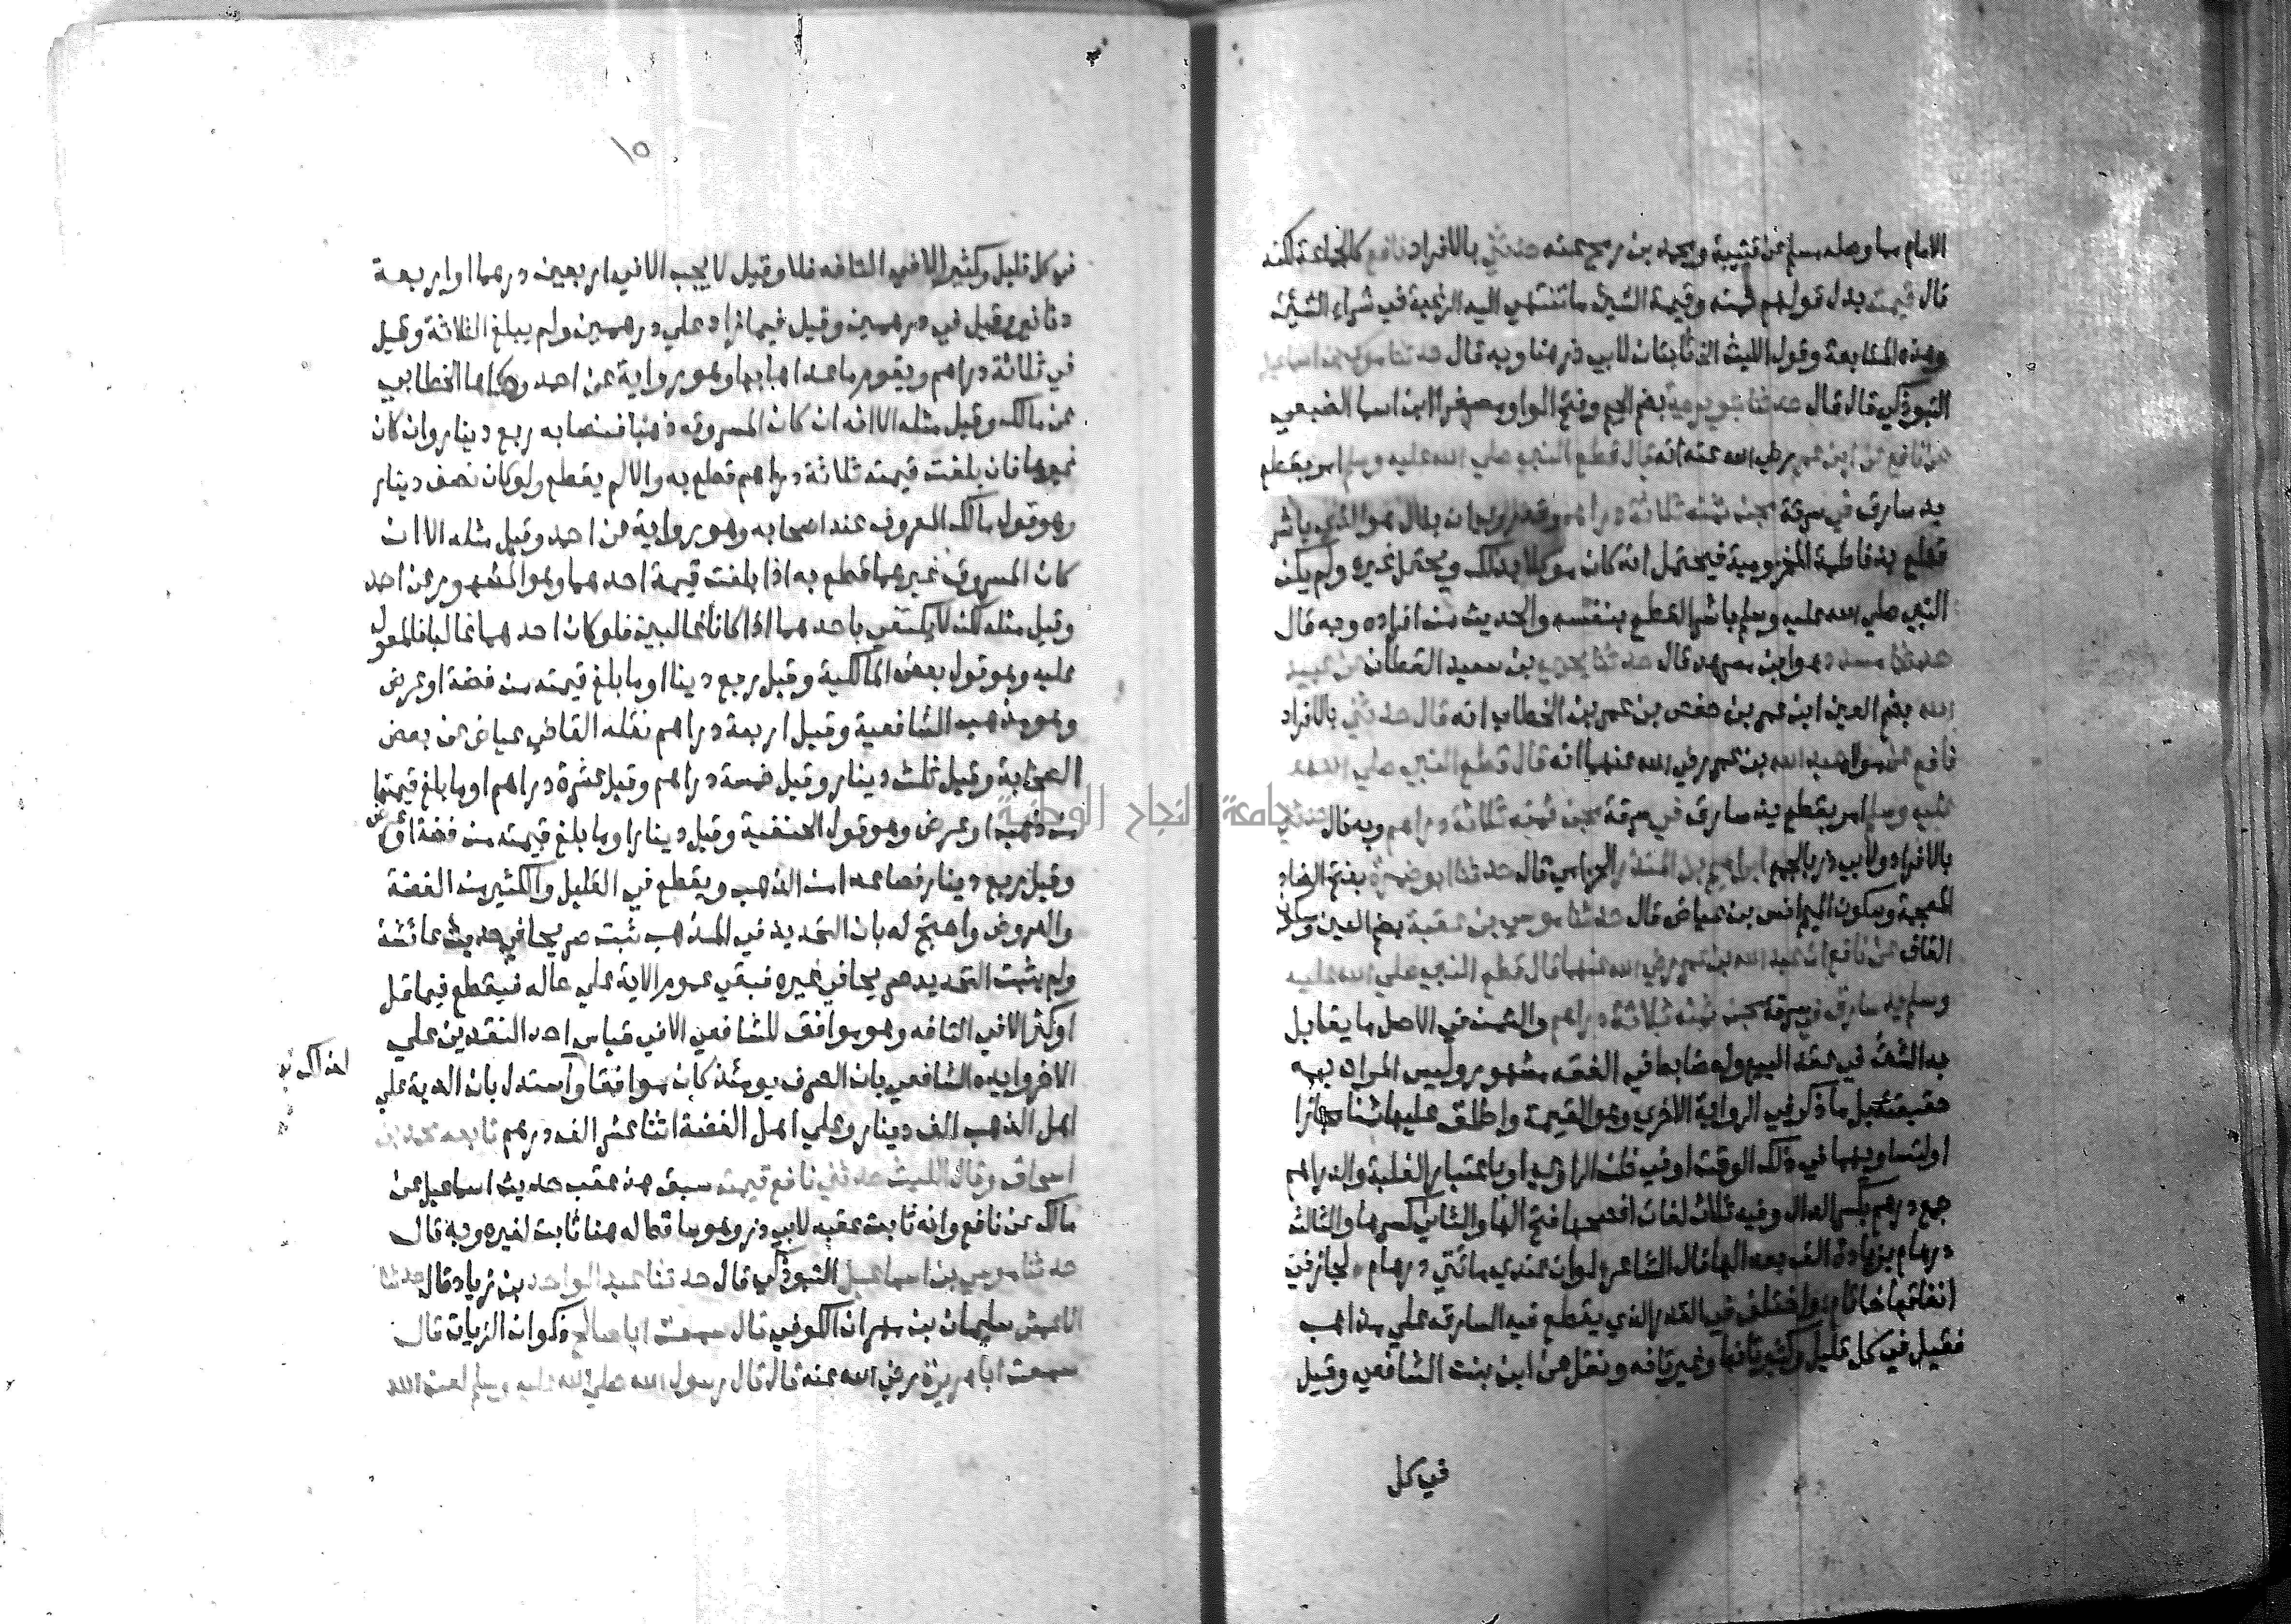 الامام مما وصله مسلم عن قتيبة ومحمد بن رمح عنه حدثني بالافراد نافع كالجماعة لكنه
قال قيمته بدل قولهم ثمنه وقيمة الشيئ ما تنتهي اليه الرغبة في شراء الشيئ
وهذه المتابعة وقول الليث الخ ثابتان لابي ذر هنا وبه قال حدثنا موسى بن اسماعيل
التبوذكي قال قال حدثنا جويرية بضم الجيم وفتح الواو مصغرا ابن اسما الضبعي
عن نافع عن ابن عمر رضي الله عنه انه قال قطع النبي صلي الله عليه وسلم امر بقطع
يد سارق في سرقة مجن ثمنه ثلاثة دراهم وقد روي ان بلال هو الذي باشر
قطع يد فاطمة المخزومية فيحتمل انه كان موكلا بذلك ويحتمل غيره ولم يكن
النبي صلي الله عليه وسلم باشر القطع بنفسه والحديث من افراده وبه قال
حدثنا مسدد هو ابن مسرهد قال حدثنا يحيى بن سعيد القطان عن عبيد
الله بضم العين ابن عمر بن حفص بن عمر بن الخطاب انه قال حدثني بالافراد
نافع عن مولاه عبد الله بن عمر رضي الله عنهما انه قال قطع النبي صلي الله
عليه وسلم امر بقطع يد سارق في سرقة مجن ثمنه ثلاثة دراهم وبه قال حدثني
بالافراد ولابي ذر بالجمع ابراهيم بن المنذر الحزامي قال حدثنا ابو ضمرة بفتح الضاد
المعجمة وسكون الميم انس بن عياض قال حدثنا موسي بن عقبة بضم العين وسكون
القاف عن نافع ان عبد الله بن عمر رضي الله عنهما قال قطع النبي صلي الله عليه
وسلم يد سارق في سرقة مجن ثمنه ثلاثة دراهم والثمن في الاصل ما يقابل
به الشئ في عقد البيع وله ضابط في الفقه مشهور وليس المراد به
حقيقته بل ما ذكر في الرواية الاخري وهو القيمة واطلق عليها ثمنا مجازا
او لتساويهما في ذلك الوقت او في ظن الراوي او باعتبار الغلبة والدراهم
جمع درهم بكسر الدال وفيه ثلاث لغات افصحها فتح الها والثاني كسرها والثالث
درهام بزيادة الف بعد الها قال الشاعر لو ان عندي مائتي درهام لجاز في
انفاقها خاتام واختلف في القدر الذي يقطع فيه السارق علي مذاهب
فقيل في كل قليل وكثير تافها وغير تافه ونقل عن ابن بنت الشافعي وقيل
في كل
١٥
في كل قليل وكثير الا في التافه فلا وقيل لا يجب الا في اربعين درهما او اربعة
دنانير وقيل في درهمين وقيل فيما زاد علي درهمين ولم يبلغ الثلاثة وقيل
في ثلاثة دراهم ويقوم ما عداها بها وهو رواية عن احمد وحكاها الخطابي
عن مالك وقيل مثله الا انه ان كان المسروق ذهبا فنصابه ربع دينار وان كان
غيرها فان بلغت قيمته ثلاثة دراهم قطع به والا لم يقطع ولو كان نصف دينار
وهو قول مالك المعروف عند اصحابه وهو رواية عن احمد وقيل مثله الا ان
كان المسروق غيرهما قطع به اذا بلغت قيمة احدهما وهو المشهور عن احمد
وقيل مثله لكن لا يكتفي باحدهما اذا كانا غالبين فلو كان احدهما غالبا فالمعول
عليه وهو قول بعض المالكية وقيل ربع دينا او ما بلغ قيمته من فضة او عرض
وهو مذهب الشافعية وقيل اربعة دراهم نقله القاضي عياض عن بعض
الصحابة وقيل ثلث دينار وقيل خمسة دراهم وقيل عشرة دراهم او ما بلغ قيمتها
من ذهب او عرض وهو قول الحنفية وقيل دينارا وما بلغ قيمته من فضة او عرض
وقيل ربع دينار فصاعدا من الذهب ويقطع في القليل والكثير من الفضة
والعروض واحتج له بان التحديد في المذهب ثبت صريحا في حديث عائشة
ولم يثبت التحديد صريحا في غيره فبقي عموم الاية علي حاله فيقطع فيما قل
او كثر الا في التافه وهو موافق للشافعي الا في قياس احد النقدين علي
الاخر وايده الشافعي بان الصرف يومئذ كان موافقا واستدل بان الدية علي
اهل الذهب الف دينار وعلي اهل الفضة اثنا عشر الف درهم تابعه محمد بن
اسحاق وقال الليث حدثني نافع قيمته سبق هذا عقب حديث اسماعيل عن
مالك عن نافع وانه ثابت عقبه لابي ذر وهو ساقط له هنا ثابت لغيره وبه قال
حدثنا موسى بن اسماعيل التبوذكي قال حدثنا عبد الواحد بن زياد قال حدثنا
الاعمش سليمان بن مهران الكوفي قال سمعت ابا صالح ذكوان الزيات قال
سمعت ابا هريرة رضي الله عنه قال قال رسول الله صلي الله عليه وسلم لعن الله
جامعة النجاح الوطنية